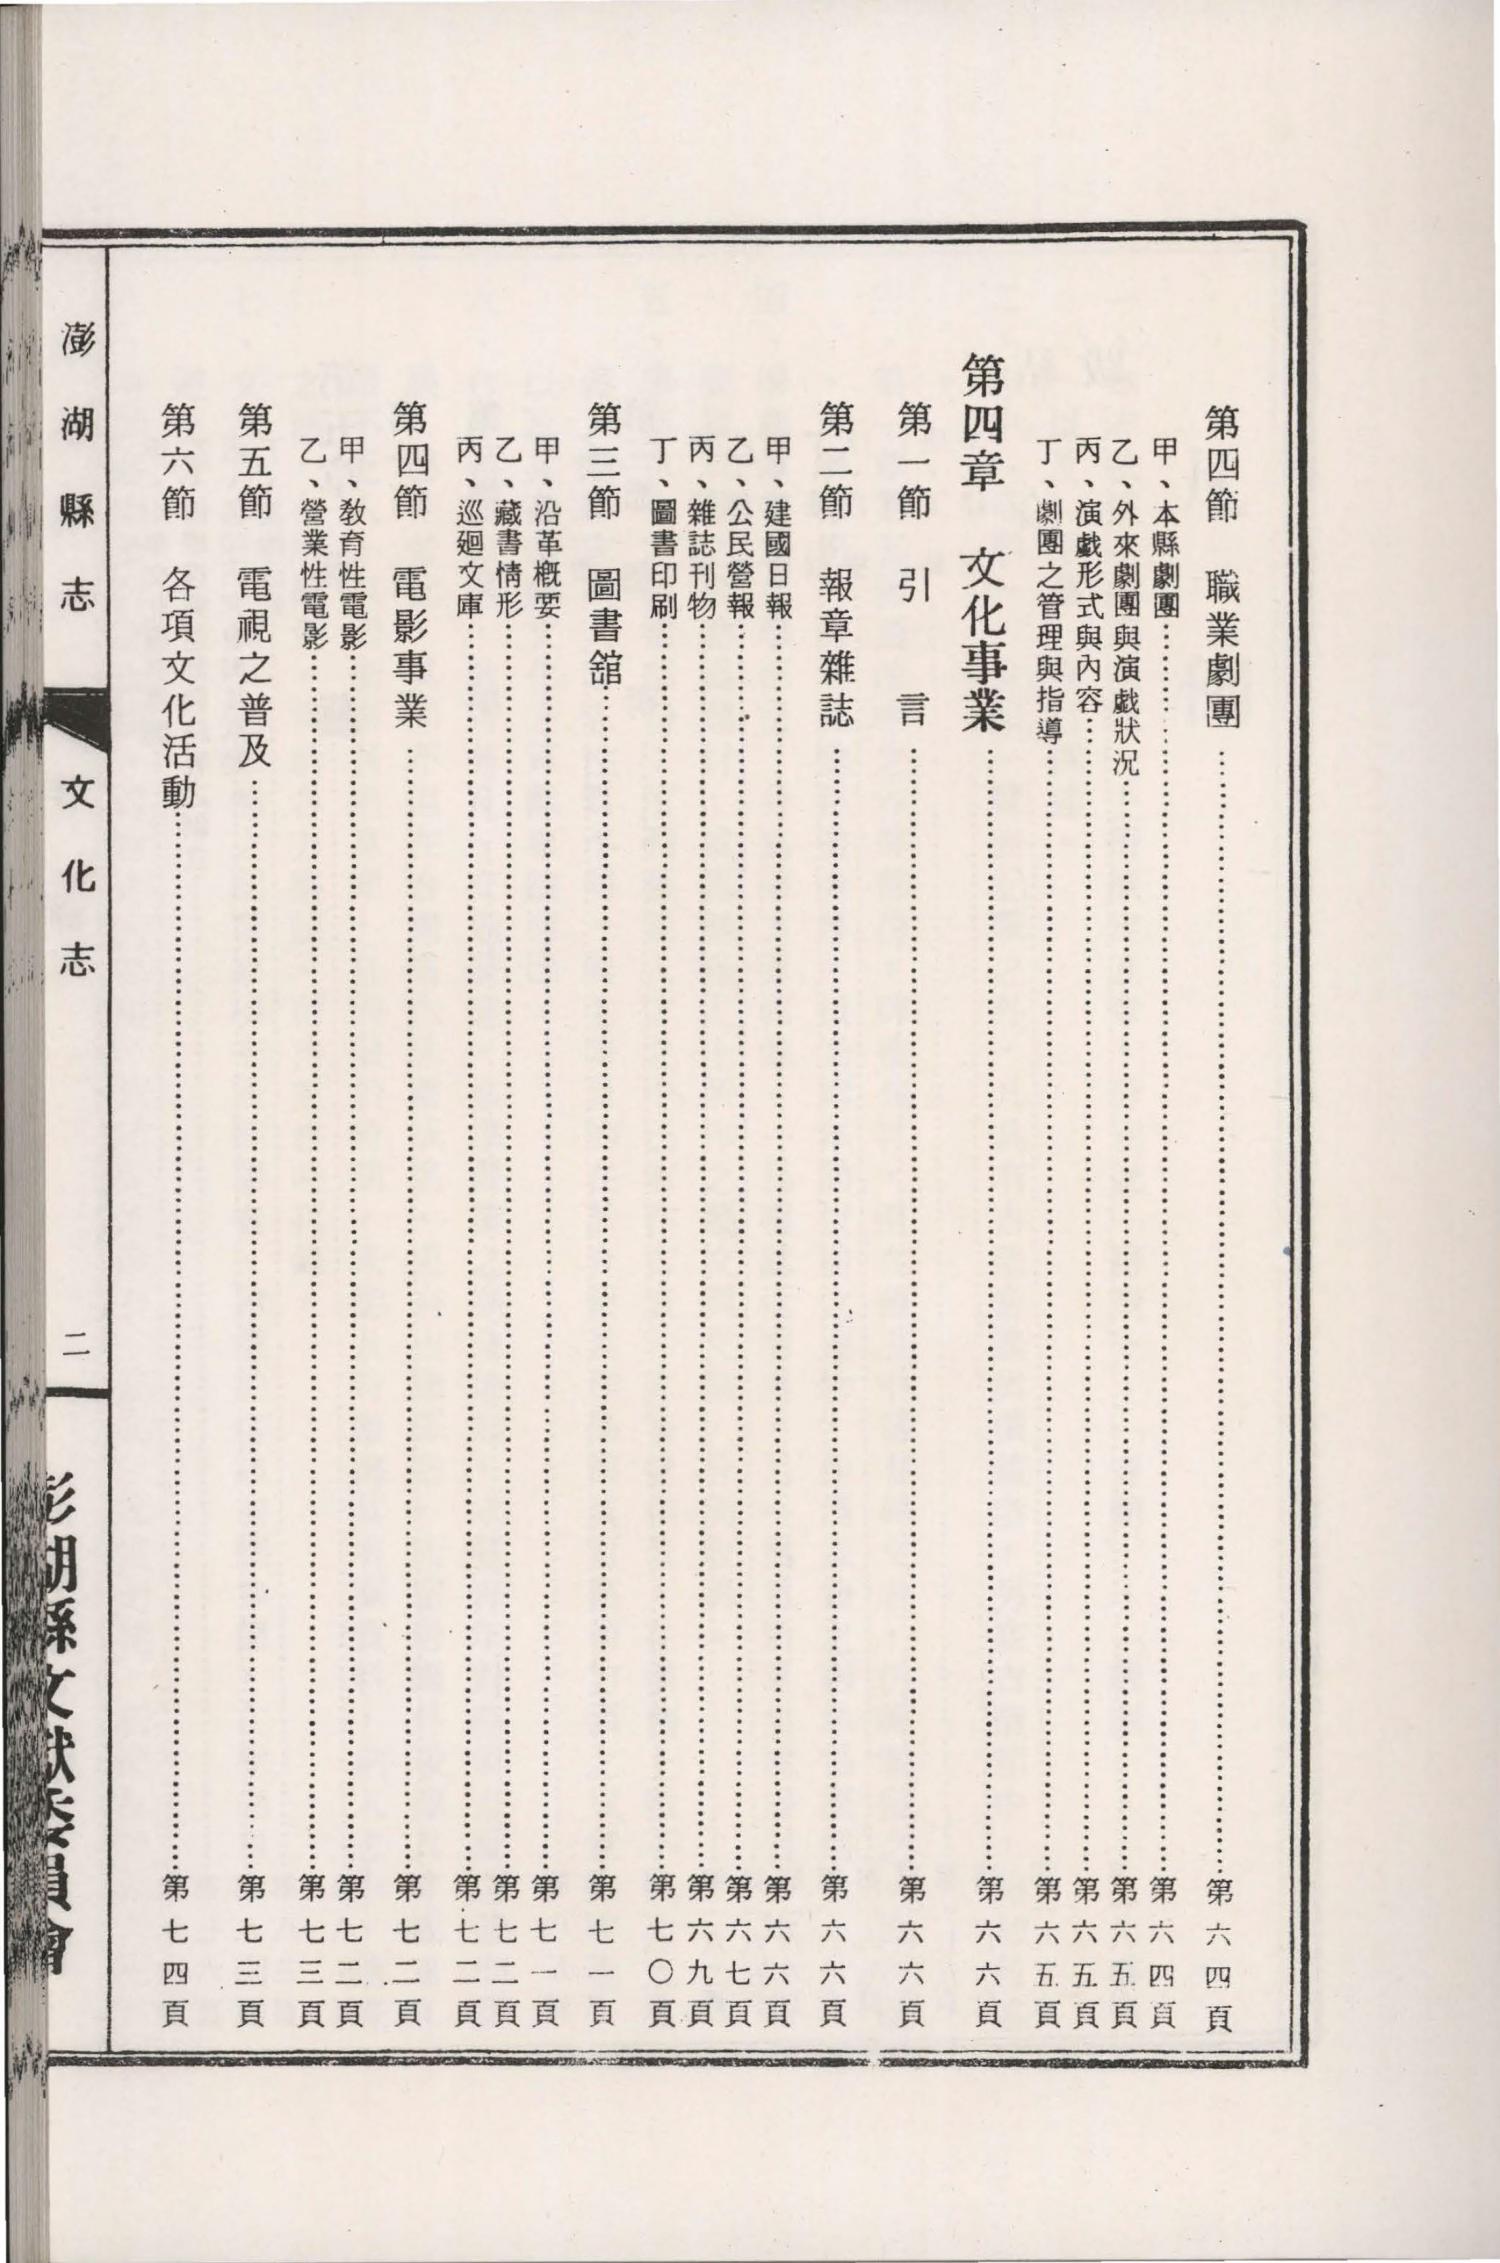 第四節　職業劇團……第六四頁
甲、本縣劇團……第六四頁
乙、外來劇團與演戲狀況……第六五頁
丙、演戲形式與內容……第六五頁
丁、劇團之管理與指導……第六五頁
第四章　文化事業……第六六頁
第一節　引　言……第六六頁
第二節　報章雜誌……第六六頁
甲、建國日報……第六六頁
乙、公民營報……第六七頁
丙、雜誌刊物……第六九頁
丁、圖書印刷……第七〇頁
第三節　圖書舘……第七一頁
甲、沿革概要……第七一頁
乙、藏書情形……第七二頁
丙、巡廻文庫……第七二頁
第四節　電影事業……第七二頁
甲、教育性電影……第七二頁
乙、營業性電影……第七三頁
第五節　電視之普及……第七三頁
第六節　各項文化活動……第七四頁
澎湖縣志　文化志　二
澎湖縣文獻委員會